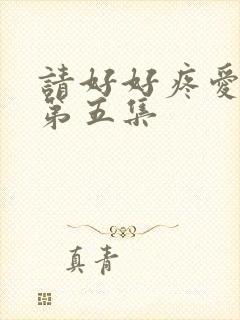 請好好疼愛
第五集
真青